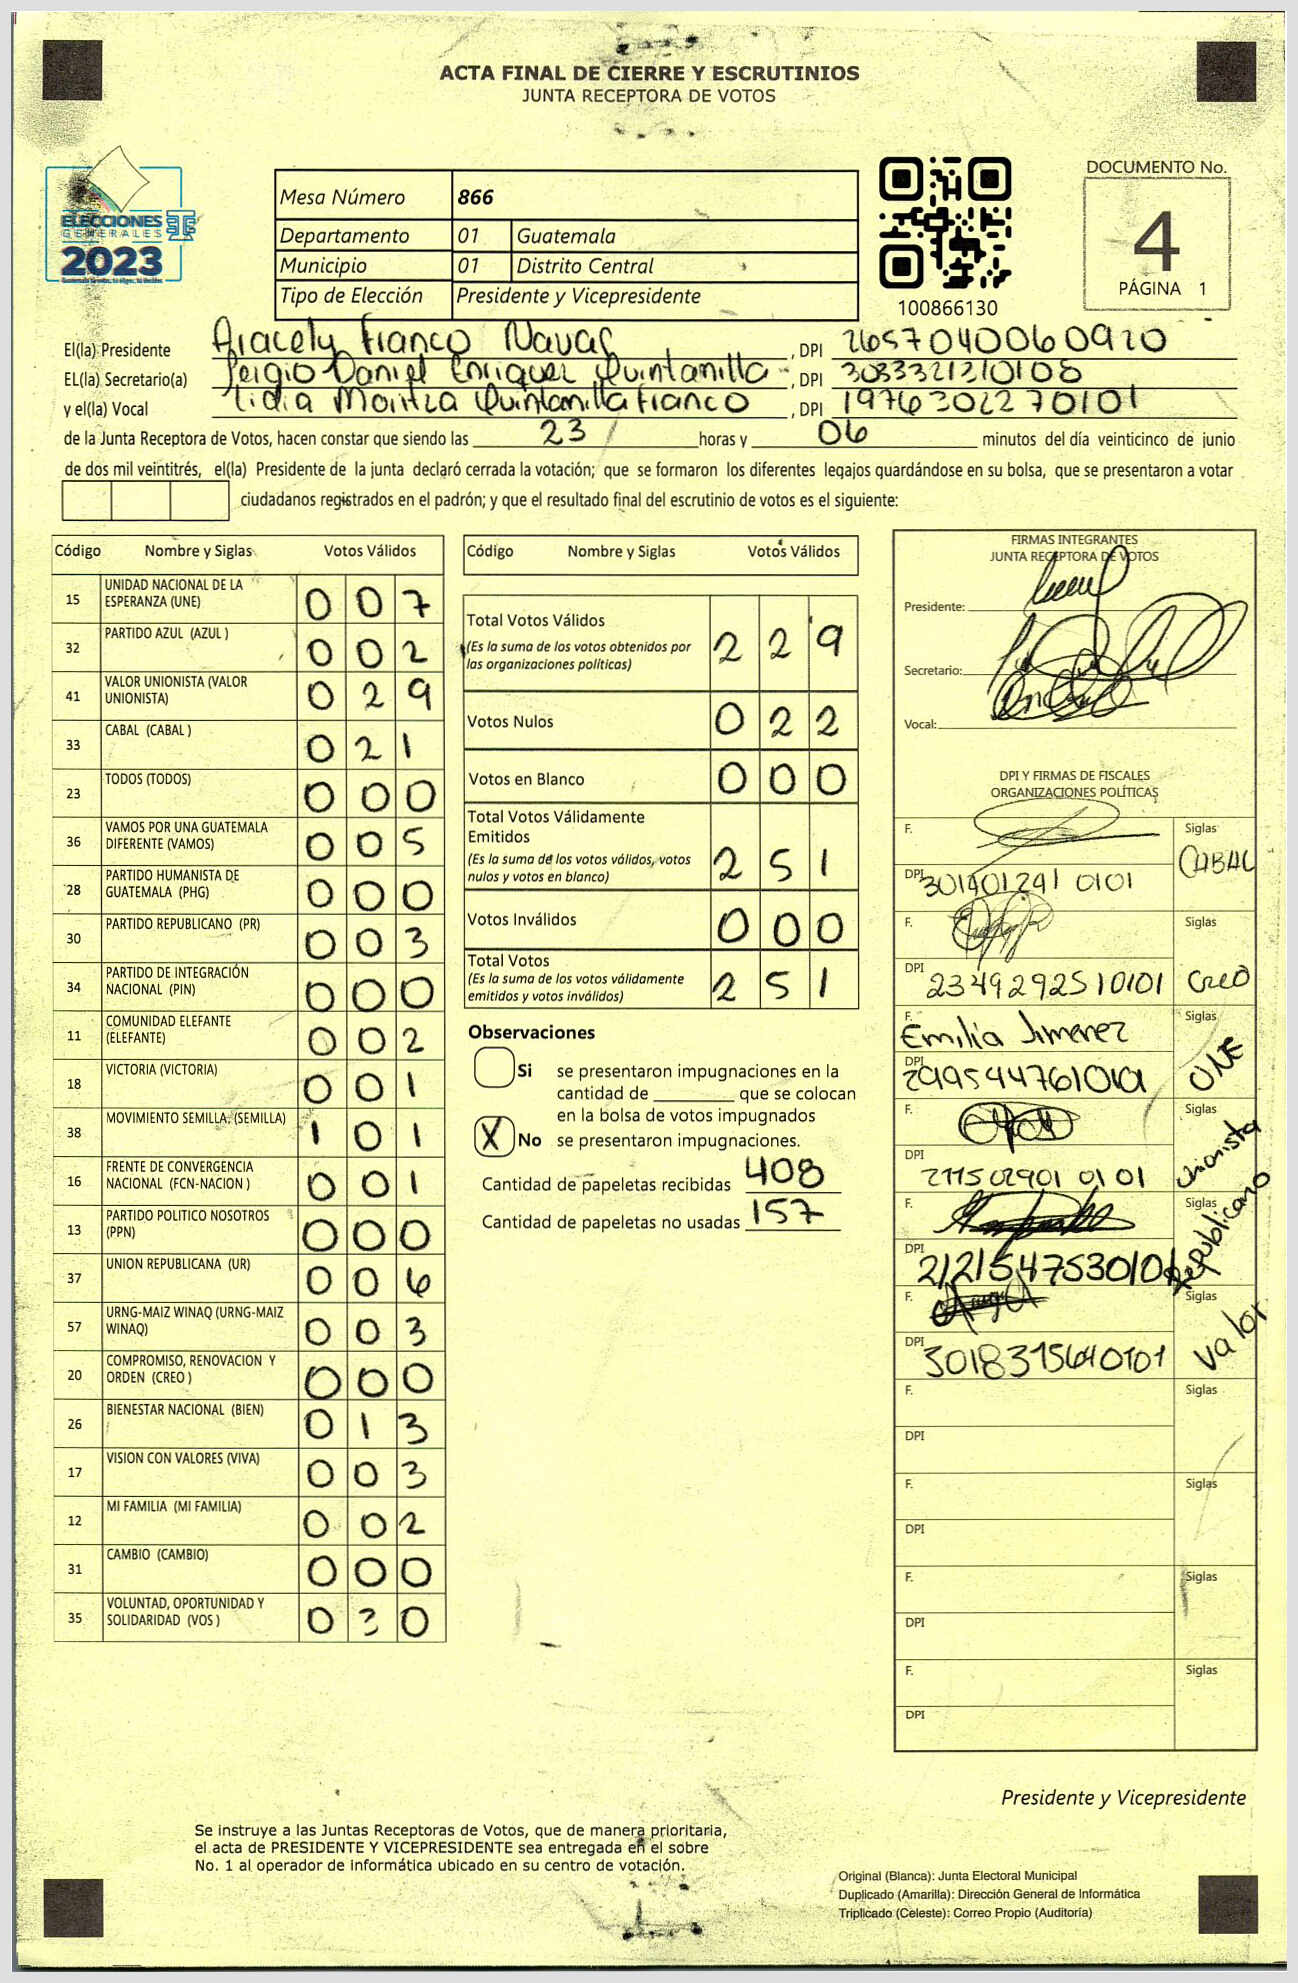 ACTA FINAL DE CIERRE Y ESCRUTINIOS
JUNTA RECEPTORA DE VOTOS
ELECCIONES
GENERALES
2023
Mesa Número 866
Departamento 01 Guatemala
Municipio 01 Distrito Central
Tipo de Elección Presidente y Vicepresidente
100866130
DOCUMENTO No.
4
PÁGINA 1
El(la) Presidente Aracely Franco Navas, DPI 2657040060920
EL(la) Secretario(a) Sergio Daniel Enriquez Quintanilla, DPI 3033321210108
y el(la) Vocal Lidia Maritza Quintanilla Franco, DPI 1976302270101
de la Junta Receptora de Votos, hacen constar que siendo las 23 horas y 06 minutos del día veinticinco de junio
de dos mil veintitrés, el(la) Presidente de la junta declaró cerrada la votación; que se formaron los diferentes legajos guardándose en su bolsa, que se presentaron a votar
ciudadanos registrados en el padrón; y que el resultado final del escrutinio de votos es el siguiente:
Código Nombre y Siglas Votos Válidos
15 UNIDAD NACIONAL DE LA ESPERANZA (UNE) 0 0 7
32 PARTIDO AZUL (AZUL ) 0 0 2
41 VALOR UNIONISTA (VALOR UNIONISTA) 0 2 9
33 CABAL (CABAL ) 0 2 1
23 TODOS (TODOS) 0 0 0
36 VAMOS POR UNA GUATEMALA DIFERENTE (VAMOS) 0 0 5
28 PARTIDO HUMANISTA DE GUATEMALA (PHG) 0 0 0
30 PARTIDO REPUBLICANO (PR) 0 0 3
34 PARTIDO DE INTEGRACIÓN NACIONAL (PIN) 0 0 0
11 COMUNIDAD ELEFANTE (ELEFANTE) 0 0 2
18 VICTORIA (VICTORIA) 0 0 1
38 MOVIMIENTO SEMILLA (SEMILLA) 1 0 1
16 FRENTE DE CONVERGENCIA NACIONAL (FCN-NACION ) 0 0 1
13 PARTIDO POLITICO NOSOTROS (PPN) 0 0 0
37 UNION REPUBLICANA (UR) 0 0 6
57 URNG-MAIZ WINAQ (URNG-MAIZ WINAQ) 0 0 3
20 COMPROMISO, RENOVACION Y ORDEN (CREO ) 0 0 0
26 BIENESTAR NACIONAL (BIEN) 0 1 3
17 VISION CON VALORES (VIVA) 0 0 3
12 MI FAMILIA (MI FAMILIA) 0 0 2
31 CAMBIO (CAMBIO) 0 0 0
35 VOLUNTAD, OPORTUNIDAD Y SOLIDARIDAD (VOS ) 0 3 0
Código Nombre y Siglas Votos Válidos
Total Votos Válidos 2 2 9
(Es la suma de los votos obtenidos por
las organizaciones políticas)
Votos Nulos 0 2 2
Votos en Blanco 0 0 0
Total Votos Válidamente
Emitidos 2 5 1
(Es la suma de los votos válidos, votos
nulos y votos en blanco)
Votos Inválidos 0 0 0
Total Votos 2 5 1
(Es la suma de los votos válidamente
emitidos y votos inválidos)
Observaciones
Si se presentaron impugnaciones en la
cantidad de ________ que se colocan
en la bolsa de votos impugnados
X No se presentaron impugnaciones.
Cantidad de papeletas recibidas 408
Cantidad de papeletas no usadas 157
FIRMAS INTEGRANTES
JUNTA RECEPTORA DE VOTOS
Presidente:
Secretario:
Vocal:
DPI Y FIRMAS DE FISCALES
ORGANIZACIONES POLÍTICAS
F. Siglas CABAL
DPI 301401241 0101
F. Siglas CREO
DPI 2349292510101
F. Emilia Jimenez Siglas UNE
DPI 2995447610101
F. Siglas Unionista
DPI 211502901 0101
F. Siglas Republicano
DPI 2121547530101
F. Siglas Valor
DPI 3018315640101
F. Siglas
DPI
F. Siglas
DPI
F. Siglas
DPI
F. Siglas
DPI
Presidente y Vicepresidente
Se instruye a las Juntas Receptoras de Votos, que de manera prioritaria,
el acta de PRESIDENTE Y VICEPRESIDENTE sea entregada en el sobre
No. 1 al operador de informática ubicado en su centro de votación.
Original (Blanca): Junta Electoral Municipal
Duplicado (Amarilla): Dirección General de Informática
Triplicado (Celeste): Correo Propio (Auditoría)